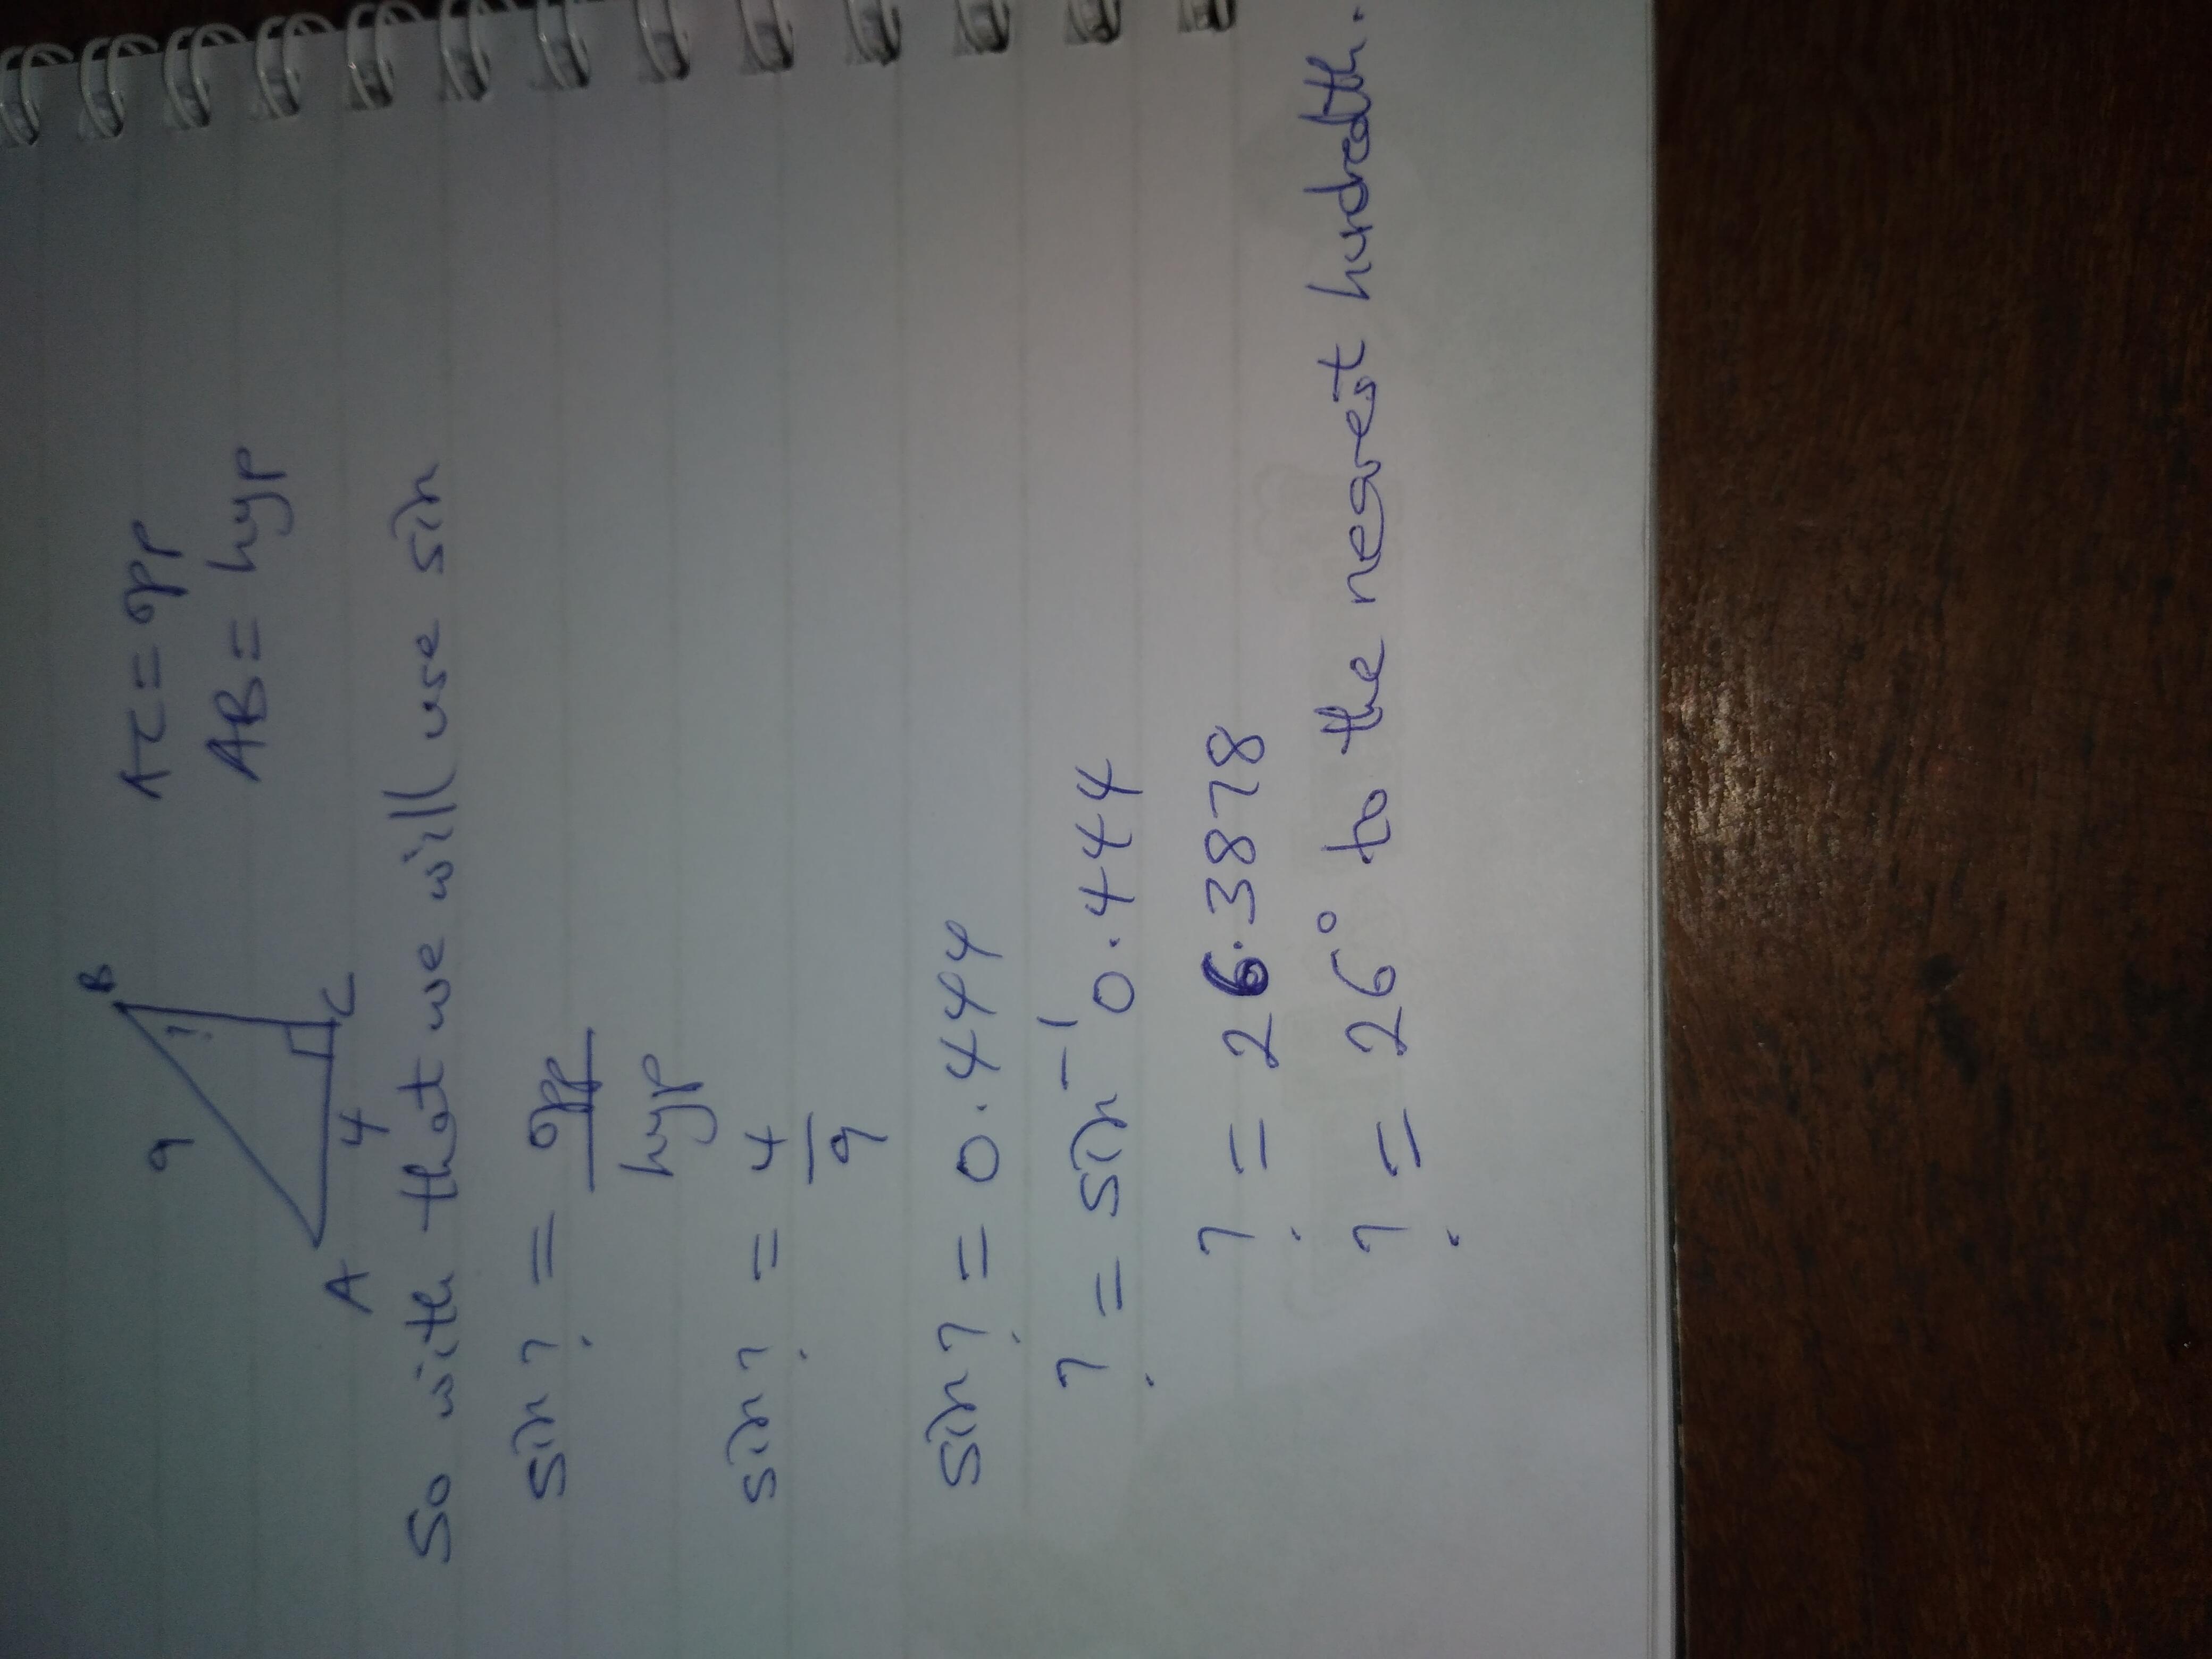 B
9
?
A
4
C
AC = opp
AB = hyp
So with that we will use sin
sin ? = opp
hyp
sin ? = 4
9
sin ? = 0.444
? = sin⁻¹ 0.444
? = 26.3878
? = 26° to the nearest hundredth.